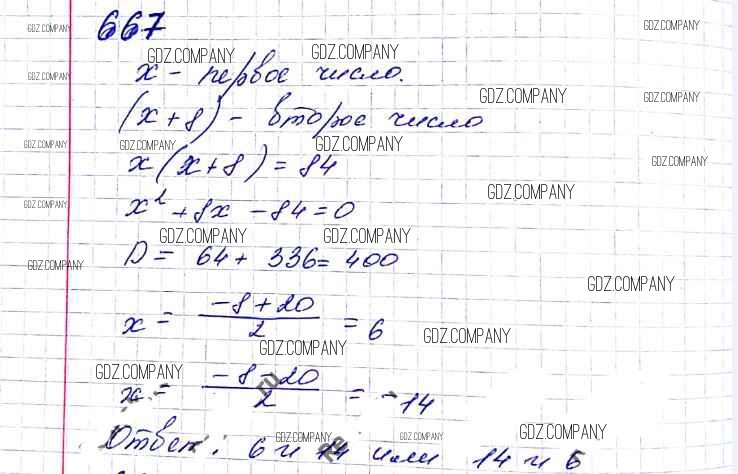 667
GDZ.COMPANY GDZ.COMPANY
GDZ.COMPANY GDZ.COMPANY
x - первое число.
GDZ.COMPANY
GDZ.COMPANY GDZ.COMPANY
(x+8) - второе число
GDZ.COMPANY GDZ.COMPANY GDZ.COMPANY
x(x+8)=84
GDZ.COMPANY
GDZ.COMPANY
GDZ.COMPANY
x²+8x-84=0
GDZ.COMPANY GDZ.COMPANY
D = 64 + 336 = 400
GDZ.COMPANY
GDZ.COMPANY
x = (-8+20)/2 = 6
GDZ.COMPANY
GDZ.COMPANY
GDZ.COMPANY
x = (-8-20)/2 = -14
GDZ.COMPANY
GDZ.COMPANY GDZ.COMPANY
Ответ: 6 и 14 или 14 и 6